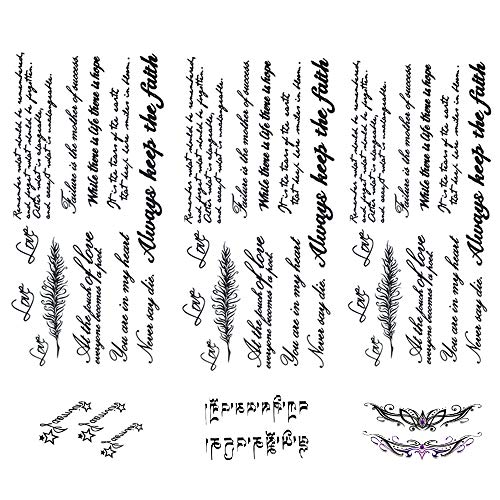 Remember what should be remembered,
and forget what should be forgotten.
Alter what is changeable,
and accept what is
Failure is the mother of success.
While there is life there is hope
It is the tears of the earth
that keep her smiles in bloom.
Always keep the faith
Love
Love
Love
At the of love
everyone becomes a poet.
You are in my heart
Never say die.
Remember what should be remembered,
and forget what should be forgotten.
Alter what is changeable,
and accept what is
Failure is the mother of success.
While there is life there is hope
It is the tears of the earth
that keep her smiles in bloom.
Always keep the faith
Love
Love
Love
At the of love
everyone becomes a poet.
You are in my heart
Never say die.
Remember what should be remembered,
and forget what should be forgotten.
Alter what is changeable,
and accept what is
Failure is the mother of success.
While there is life there is hope
It is the tears of the earth
that keep her smiles in bloom.
Always keep the faith
Love
Love
Love
At the of love
everyone becomes a poet.
You are in my heart
Never say die.